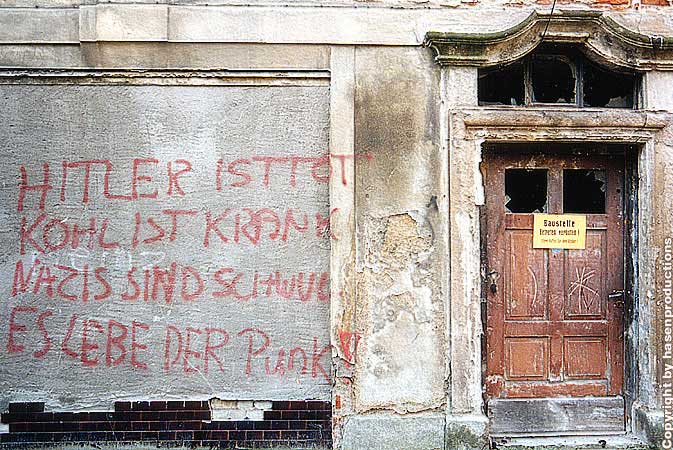 HITLER IST TOT
KOHL IST KRANK
NAZIS SIND SCHWUL
ES LEBE DER PunK
Baustelle
Betreten verboten!
Copyright by hasenproductions